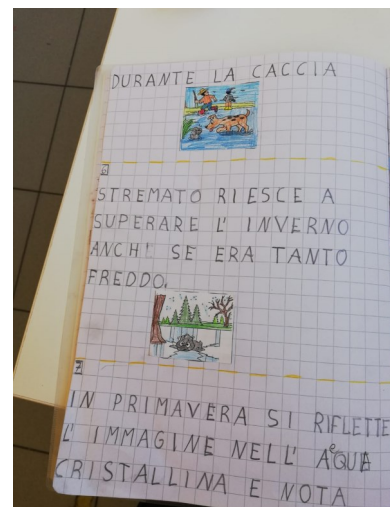 DURANTE LA CACCIA
6
STREMATO RIESCE A
SUPERARE L' INVERNO
ANCH! SE ERA TANTO
FREDDO.
7
IN PRIMAVERA SI RIFLETTE
L' IMMAGINE NELL' AcQUA
CRISTALLINA E NOTA